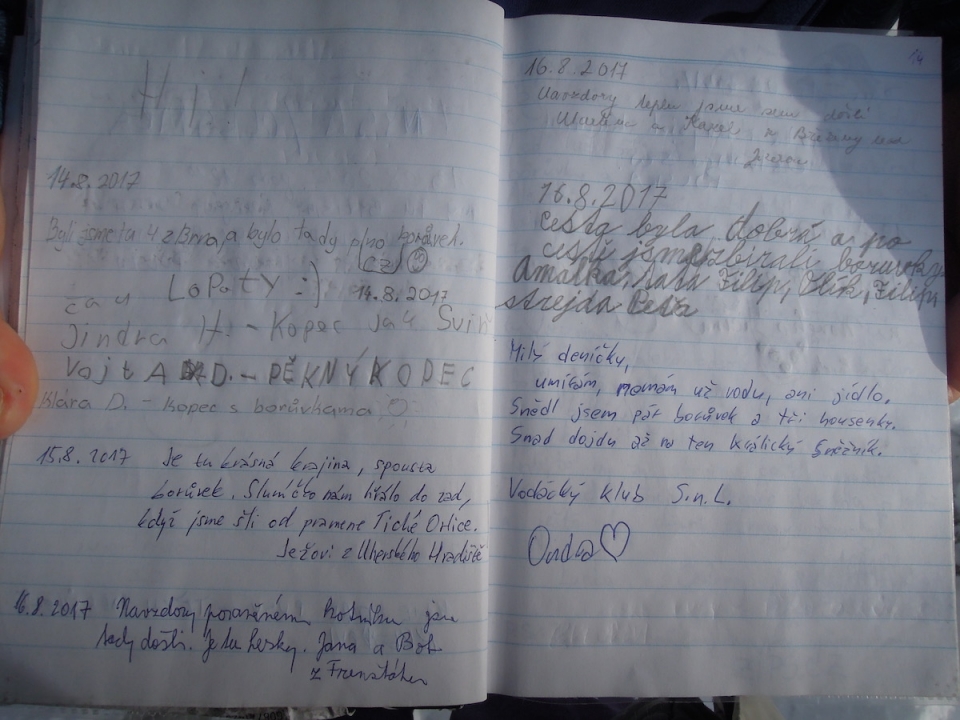 Hoj!
14.8.2017
Byli jsme tu 4 z Brna, a bylo tady plno borůvek.
CZ
Lopaty :) 14.8.2017
čau
Jindra H. - Kopec jak Sviň
VojtA D. - PĚKNÝ KOPEC
Klára D. - Kopec s borůvkama
15.8.2017 Je tu krásná krajina, spousta
borůvek. Sluníčko nám hřálo do zad,
když jsme šli od pramene Tiché Orlice.
Ježovi z Uherského Hradiště
16.8.2017 Navzdory poraněném kotníku jsme
tady došli. Je tu hezky. Jana a Bob
z Frenštátu
14
16.8.2017
Navzdory teplu jsme sem došli
a Karel z
16.8.2017
cesta byla dobrá a po
cestě jsme sbírali borůvky
Amálka, Filip, Filip,
strejda Petr
Milý deníčky,
umírám, nemám už vodu, ani jídlo.
Snědl jsem pár borůvek a tři housenky.
Snad dojdu až na ten Králický Sněžník.
Vodácký klub S.n.L.
Ondra ♡